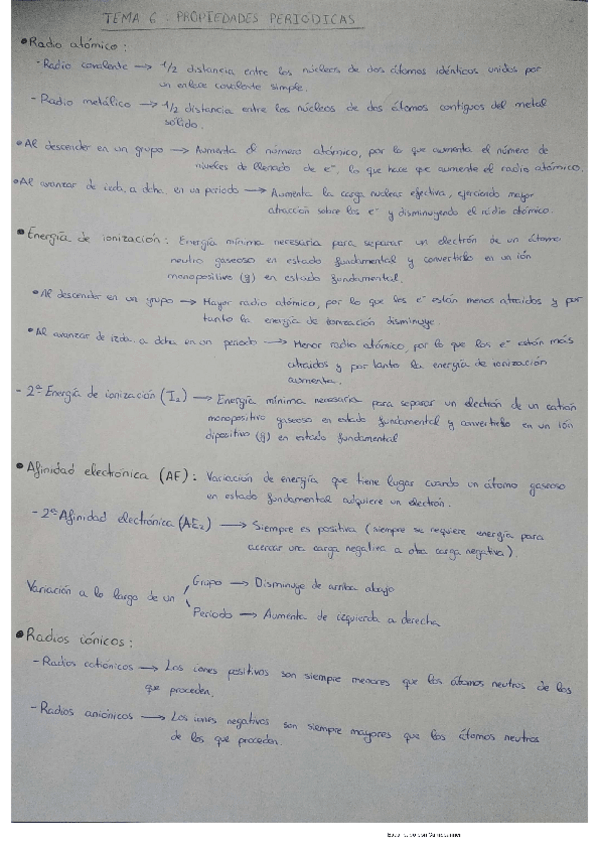 TEMA 6. PROPIEDADES PERIÓDICAS
• Radio atómico:
- Radio covalente → 1/2 distancia entre los núcleos de dos átomos idénticos unidos por
un enlace covalente simple.
- Radio metálico → 1/2 distancia entre los núcleos de dos átomos contiguos del metal
sólido.
• Al descender en un grupo → Aumenta el número atómico, por lo que aumenta el número de
niveles de llenado de e⁻, lo que hace que aumente el radio atómico.
• Al avanzar de izda. a dcha. en un periodo → Aumenta la carga nuclear efectiva, ejerciendo mayor
atracción sobre los e⁻ y disminuyendo el radio atómico.
• Energía de ionización: Energía mínima necesaria para separar un electrón de un átomo
neutro gaseoso en estado fundamental y convertirlo en un ión
monopositivo (g) en estado fundamental.
• Al descender en un grupo → Mayor radio atómico, por lo que los e⁻ están menos atraidos y por
tanto la energía de ionización disminuye.
• Al avanzar de izda. a dcha en un periodo → Menor radio atómico, por lo que los e⁻ están más
atraidos y por tanto la energía de ionización
aumenta.
- 2ª Energía de ionización (I₂) → Energía mínima necesaria para separar un electrón de un catión
monopositivo gaseoso en estado fundamental y convertirlo en un ión
dipositivo (g) en estado fundamental
• Afinidad electrónica (AE): Variación de energía que tiene lugar cuando un átomo gaseoso
en estado fundamental adquiere un electrón.
- 2ª Afinidad electrónica (AE₂) → Siempre es positiva (siempre se requiere energía para
acercar una carga negativa a otra carga negativa).
Variación a lo largo de un
Grupo → Disminuye de arriba abajo
Período → Aumenta de izquierda a derecha
• Radios iónicos:
- Radios catiónicos → Los iones positivos son siempre menores que los átomos neutros de los
que proceden.
- Radios aniónicos → Los iones negativos son siempre mayores que los átomos neutros
de los que proceden.